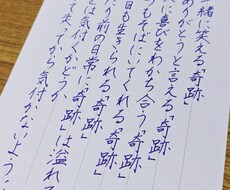 緒に笑える「奇跡」
ありがとうと言える「奇跡」
に喜びをわかち合う「奇跡」
つもそばにいてくれる「奇跡」
日も生きられる「奇跡」
り前の日常に「奇跡」は溢れて
は気付くかどうか
て失ってから気付かないよう